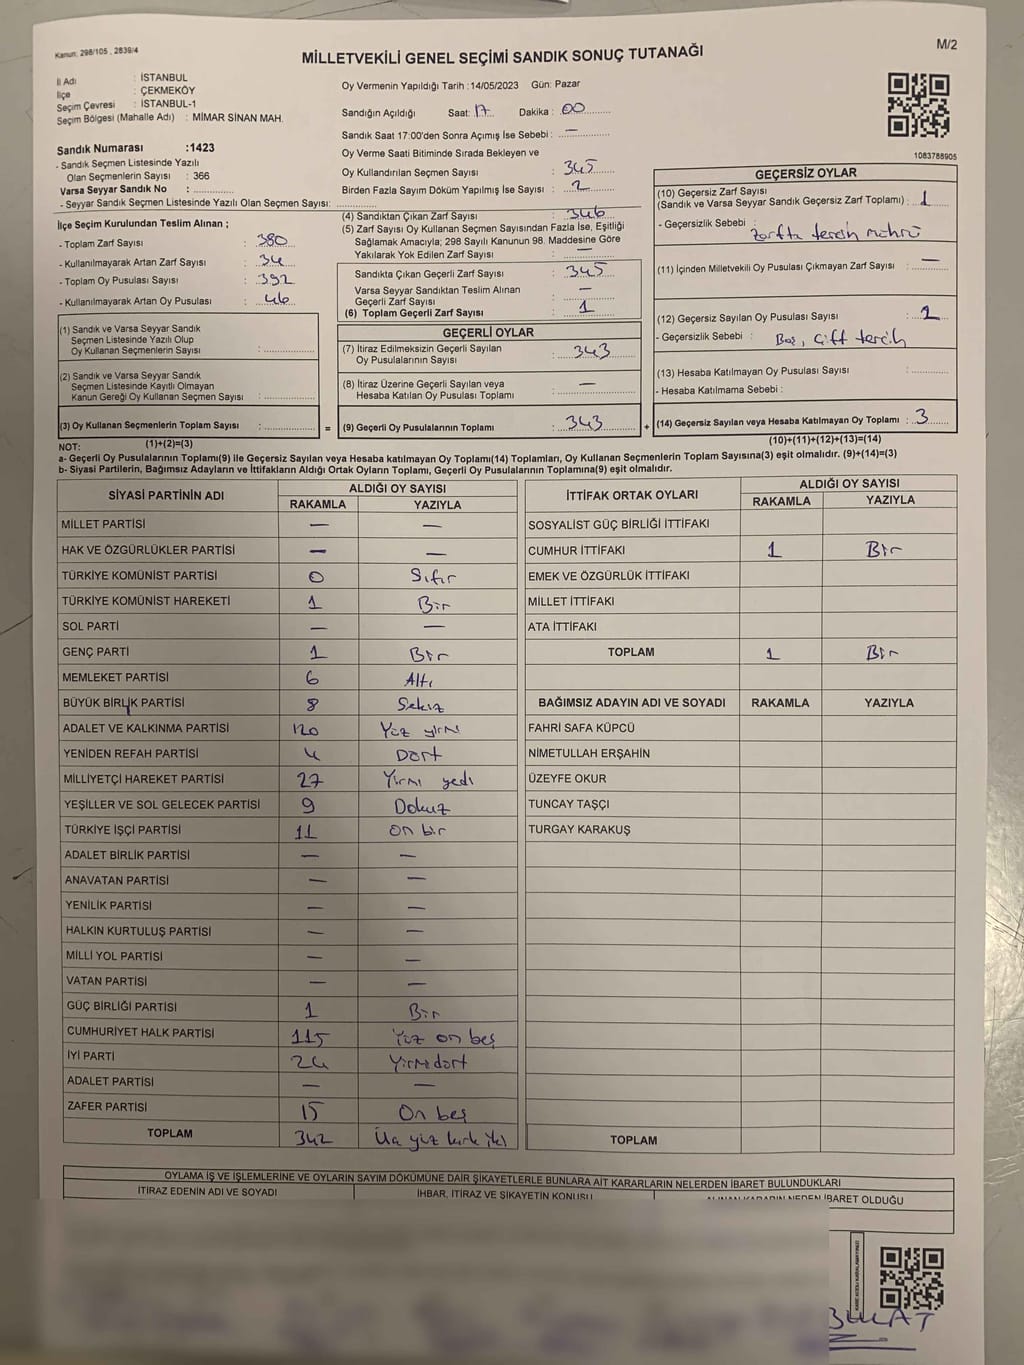 Kanun: 298/105 , 2839/4
M/2
MİLLETVEKİLİ GENEL SEÇİMİ SANDIK SONUÇ TUTANAĞI
İl Adı : İSTANBUL
İlçe : ÇEKMEKÖY
Seçim Çevresi : İSTANBUL-1
Seçim Bölgesi (Mahalle Adı) : MİMAR SİNAN MAH.
Sandık Numarası :1423
- Sandık Seçmen Listesinde Yazılı
Olan Seçmenlerin Sayısı : 366
Varsa Seyyar Sandık No :
- Seyyar Sandık Seçmen Listesinde Yazılı Olan Seçmen Sayısı:
Oy Vermenin Yapıldığı Tarih : 14/05/2023 Gün: Pazar
Sandığın Açıldığı Saat: 17 Dakika : 00
Sandık Saat 17:00'den Sonra Açımış İse Sebebi : —
Oy Verme Saati Bitiminde Sırada Bekleyen ve
Oy Kullandırılan Seçmen Sayısı : 345
Birden Fazla Sayım Döküm Yapılmış İse Sayısı : 2
1083788905
İlçe Seçim Kurulundan Teslim Alınan ;
- Toplam Zarf Sayısı : 380
- Kullanılmayarak Artan Zarf Sayısı : 34
- Toplam Oy Pusulası Sayısı : 392
- Kullanılmayarak Artan Oy Pusulası : 46
(1) Sandık ve Varsa Seyyar Sandık
Seçmen Listesinde Yazılı Olup
Oy Kullanan Seçmenlerin Sayısı :
(2) Sandık ve Varsa Seyyar Sandık
Seçmen Listesinde Kayıtlı Olmayan
Kanun Gereği Oy Kullanan Seçmen Sayısı :
(3) Oy Kullanan Seçmenlerin Toplam Sayısı : =
(1)+(2)=(3)
(4) Sandıktan Çıkan Zarf Sayısı : 346
(5) Zarf Sayısı Oy Kullanan Seçmen Sayısından Fazla İse, Eşitliği
Sağlamak Amacıyla; 298 Sayılı Kanunun 98. Maddesine Göre
Yakılarak Yok Edilen Zarf Sayısı : —
Sandıkta Çıkan Geçerli Zarf Sayısı : 345
Varsa Seyyar Sandıktan Teslim Alınan
Geçerli Zarf Sayısı : —
(6) Toplam Geçerli Zarf Sayısı : 1
GEÇERLİ OYLAR
(7) İtiraz Edilmeksizin Geçerli Sayılan
Oy Pusulalarının Sayısı : 343
(8) İtiraz Üzerine Geçerli Sayılan veya
Hesaba Katılan Oy Pusulası Toplamı : —
(9) Geçerli Oy Pusulalarının Toplamı : 343 +
GEÇERSİZ OYLAR
(10) Geçersiz Zarf Sayısı
(Sandık ve Varsa Seyyar Sandık Geçersiz Zarf Toplamı) : 1
- Geçersizlik Sebebi : Zarfta tercih mührü
(11) İçinden Milletvekili Oy Pusulası Çıkmayan Zarf Sayısı : —
(12) Geçersiz Sayılan Oy Pusulası Sayısı : 2
- Geçersizlik Sebebi : Boş, Çift tercih
(13) Hesaba Katılmayan Oy Pusulası Sayısı :
- Hesaba Katılmama Sebebi :
(14) Geçersiz Sayılan veya Hesaba Katılmayan Oy Toplamı : 3
(10)+(11)+(12)+(13)=(14)
NOT:
a- Geçerli Oy Pusulalarının Toplamı(9) ile Geçersiz Sayılan veya Hesaba katılmayan Oy Toplamı(14) Toplamları, Oy Kullanan Seçmenlerin Toplam Sayısına(3) eşit olmalıdır. (9)+(14)=(3)
b- Siyasi Partilerin, Bağımsız Adayların ve İttifakların Aldığı Ortak Oyların Toplamı, Geçerli Oy Pusulalarının Toplamına(9) eşit olmalıdır.
SİYASİ PARTİNİN ADI ALDIĞI OY SAYISI
RAKAMLA YAZIYLA
MİLLET PARTİSİ — —
HAK VE ÖZGÜRLÜKLER PARTİSİ — —
TÜRKİYE KOMÜNİST PARTİSİ 0 Sıfır
TÜRKİYE KOMÜNİST HAREKETİ 1 Bir
SOL PARTİ — —
GENÇ PARTİ 1 Bir
MEMLEKET PARTİSİ 6 Altı
BÜYÜK BİRLİK PARTİSİ 8 Sekiz
ADALET VE KALKINMA PARTİSİ 120 Yüz yirmi
YENİDEN REFAH PARTİSİ 4 Dört
MİLLİYETÇİ HAREKET PARTİSİ 27 Yirmi yedi
YEŞİLLER VE SOL GELECEK PARTİSİ 9 Dokuz
TÜRKİYE İŞÇİ PARTİSİ 11 on bir
ADALET BİRLİK PARTİSİ — —
ANAVATAN PARTİSİ — —
YENİLİK PARTİSİ — —
HALKIN KURTULUŞ PARTİSİ — —
MİLLİ YOL PARTİSİ — —
VATAN PARTİSİ — —
GÜÇ BİRLİĞİ PARTİSİ 1 Bir
CUMHURİYET HALK PARTİSİ 115 Yüz on beş
İYİ PARTİ 24 Yirmidört
ADALET PARTİSİ — —
ZAFER PARTİSİ 15 On beş
TOPLAM 342 Üç yüz kırk iki
İTTİFAK ORTAK OYLARI ALDIĞI OY SAYISI
RAKAMLA YAZIYLA
SOSYALİST GÜÇ BİRLİĞİ İTTİFAKI
CUMHUR İTTİFAKI 1 Bir
EMEK VE ÖZGÜRLÜK İTTİFAKI
MİLLET İTTİFAKI
ATA İTTİFAKI
TOPLAM 1 Bir
BAĞIMSIZ ADAYIN ADI VE SOYADI RAKAMLA YAZIYLA
FAHRİ SAFA KÜPCÜ
NİMETULLAH ERŞAHİN
ÜZEYFE OKUR
TUNCAY TAŞÇI
TURGAY KARAKUŞ
TOPLAM
OYLAMA İŞ VE İŞLEMLERİNE VE OYLARIN SAYIM DÖKÜMÜNE DAİR ŞİKAYETLERLE BUNLARA AİT KARARLARIN NELERDEN İBARET BULUNDUKLARI
İTİRAZ EDENİN ADI VE SOYADI İHBAR, İTİRAZ VE ŞİKAYETİN KONUSU ALINAN KARARIN NEDEN İBARET OLDUĞU
BULAT